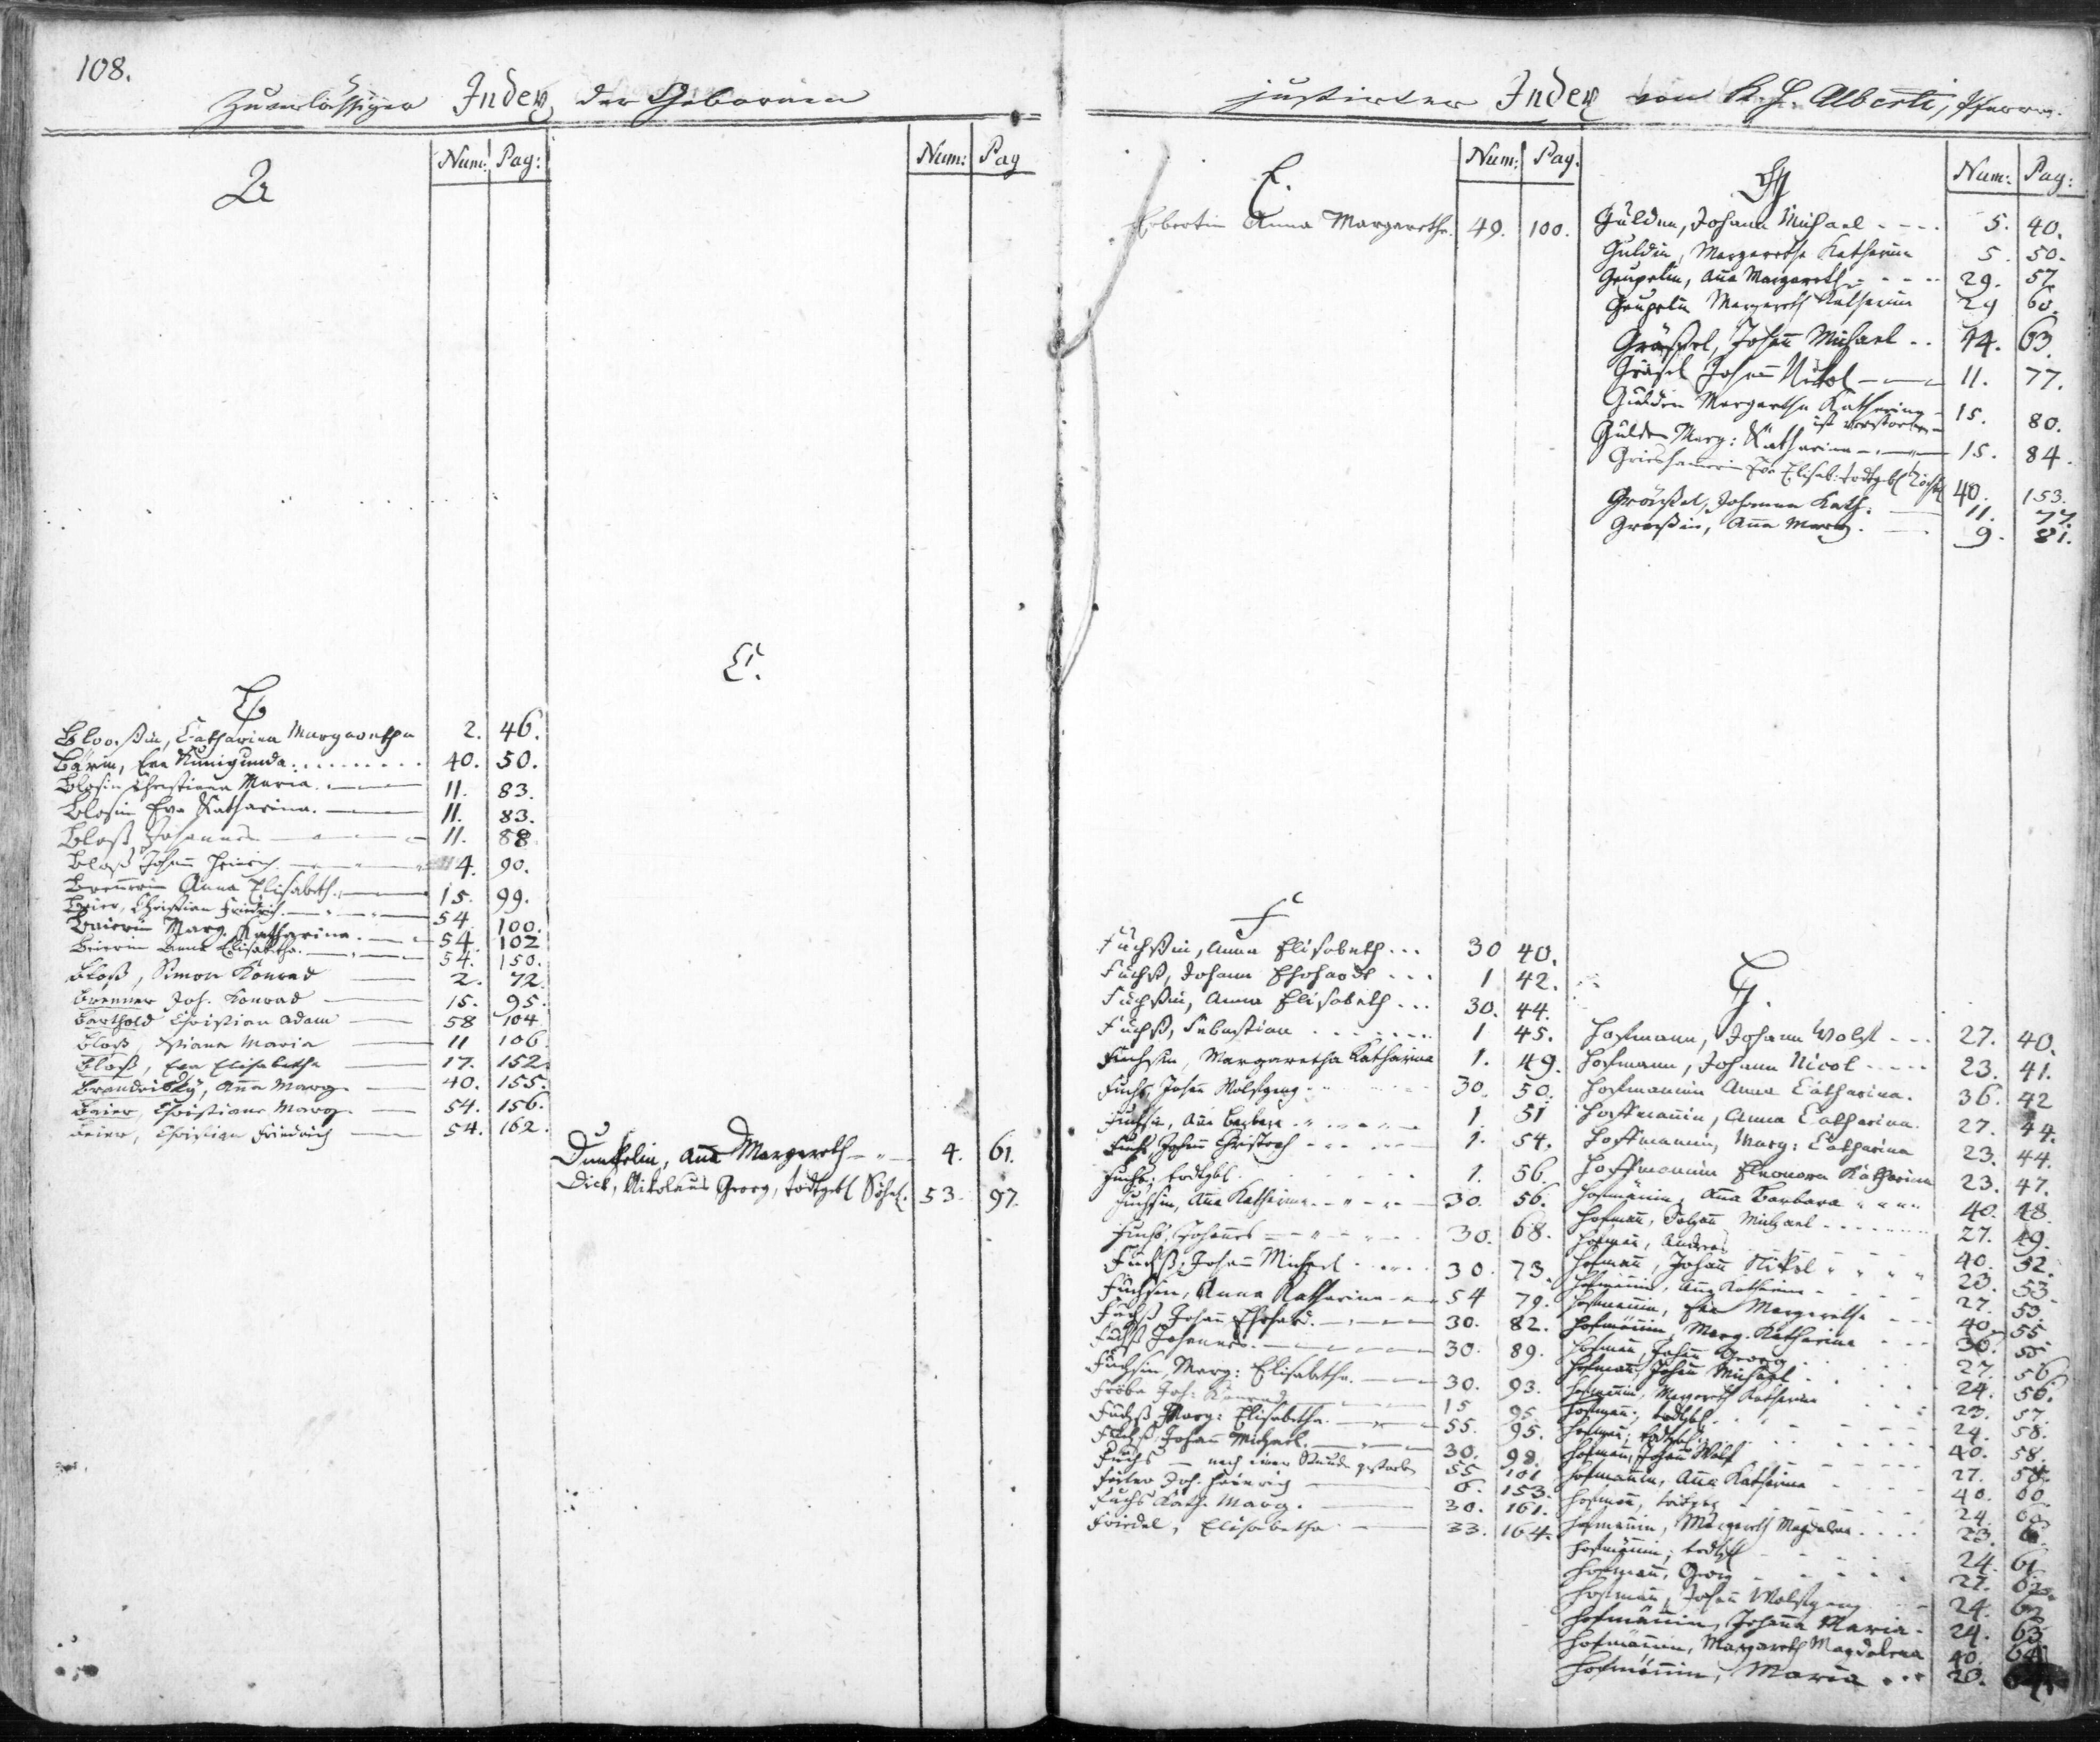 108.
Zuverlässiger Index der Gebornen
Num: Pag:
A
B
Blooßin, Catharina Margaretha 2. 46.
Bärin, Eva Kunigunda. 40. 50.
Blosin Christiana Maria. 11. 83.
Blosin Eva Katharina. 11. 83.
Bloß Johannes 11. 88
Bloß Johann Heinrich 4. 90.
Brennerin Anna Elisabeth. 15. 99.
Beier, Christian Friedrich. 54 100.
Baierin Marg. Katharina. 54. 102
Beierin Anna Elisabetha. 54. 150.
Bloß, Simon Konrad 2. 72.
Brenner Joh. Konrad 15. 95.
Barthold Christian Adam 58 104
Bloß, Xstiana Maria 11 106
Bloß, Eva Elisabetha 17. 152.
Brendrisky, Anna Marg. 40. 155.
Beier, Christiane Marg. 54. 156.
Beier, Christian Friedrich 54. 162.
Num: Pag
C.
D
Dunkelin, Anna Margareth 4. 61.
Dick, Nikolaus Georg, todtgeb Söhnl. 53. 97.
justirter Index von K. H. Alberti, Pfarrer.
Num: Pag.
E.
Ebertin Anna Margaretha. 49. 100.
F
Füchßin, Anna Elisabeth... 30 40.
Füchß, Johann Ehrhardt... 1 42.
Füchßin, Anna Elisabeth... 30. 44.
Füchß, Sebastian 1 45.
Fuchsin, Margaretha Katharina 1. 49.
Fuchs, Johann Wolfgang 30. 50.
Fuchsin, Anna Barbara 1. 51
Fuchs Johann Christoph 1. 54.
Fuchs, todtgeb. 1. 56.
Fuchsin, Anna Katharina 30. 56.
Fuchs, Johannes 30. 68.
Fuchß, Johann Michael 30 73.
Fuchsin, Anna Katharina 54 79.
Fuchß Johann Ehrhard. 30. 82.
Fuchß Johannes. 30. 89.
Fuchsin, Marg: Elisabetha. 30. 93.
Fröba Joh: Konrad 15 95
Fuchß Marg: Elisabetha. 55. 95.
Fuchß Johann Michael. 30. 99.
Fuchs — nach einer Stunde gestorben 55 101
Feiler Joh. Heinrich 6. 153.
Fuchs Kath. Marg. 30. 161.
Friedel, Elisabetha 33. 164.
Num: Pag:
G
Gulden, Johann Michael 5. 40.
Guldin, Margaretha Katharina 5. 50.
Geupelin, Anna Margareth 29. 57.
Geupelin Margareth Katharina 29 60.
Gräßel, Johann Michael 44. 63.
Gräsel Johann Nikol 11. 77.
Gulden Margartha Katharina 15. 80.
ist verstorben
Gulden Marg: Katharina 15. 84.
Grieshammerin Eva Elisab: todtgeb Töchtl 40. 153.
Gräßel, Johanna Kath. 11. 77.
Graeßin, Anna Marg. 9. 81.
H.
Hofmann, Johann Wolf 27. 40.
Hofmann, Johann Nicol 23. 41.
Hofmannin Anna Catharina. 36. 42
Hoffmannin, Anna Catharina. 27. 44.
Hoffmannin, Marg: Catharina 23. 44.
Hoffmannin Eleonora Katharina 23. 47.
Hofmännin, Anna Barbara 40. 48.
Hofmann, Johann Michael 27. 49.
Hofmann, Andreas 40. 52.
Hofmann, Johann Nikol 23. 53.
Hofmännin, Anna Katharina 27. 53.
Hofmannin, Eva Margaretha 40. 55.
Hofmännin, Marg. Katharina 36. 55
Hofmann, Johann Georg 27. 56.
Hofmann, Johann Michael 24. 56.
Hofmannin, Margareth Katharina 23. 57.
Hofmann, todtgeb. 24. 58.
Hofmann, todtgeb. 40. 58.
Hofmann, Johann Wolf 27. 58.
Hofmannin, Anna Katharina 40. 60.
Hofmann, todtgeb 24.
Hofmannin, Margareth Magdalena 23.
Hofmännin, todtgeb 24. 61
Hofmann, Georg 27. 62.
Hofmann, Johann Wolfgang 24. 62
Hofmännin, Johanna Maria 24. 63
Hofmännin, Margareth Magdalena 40. 64
Hofmännin, Maria 23.